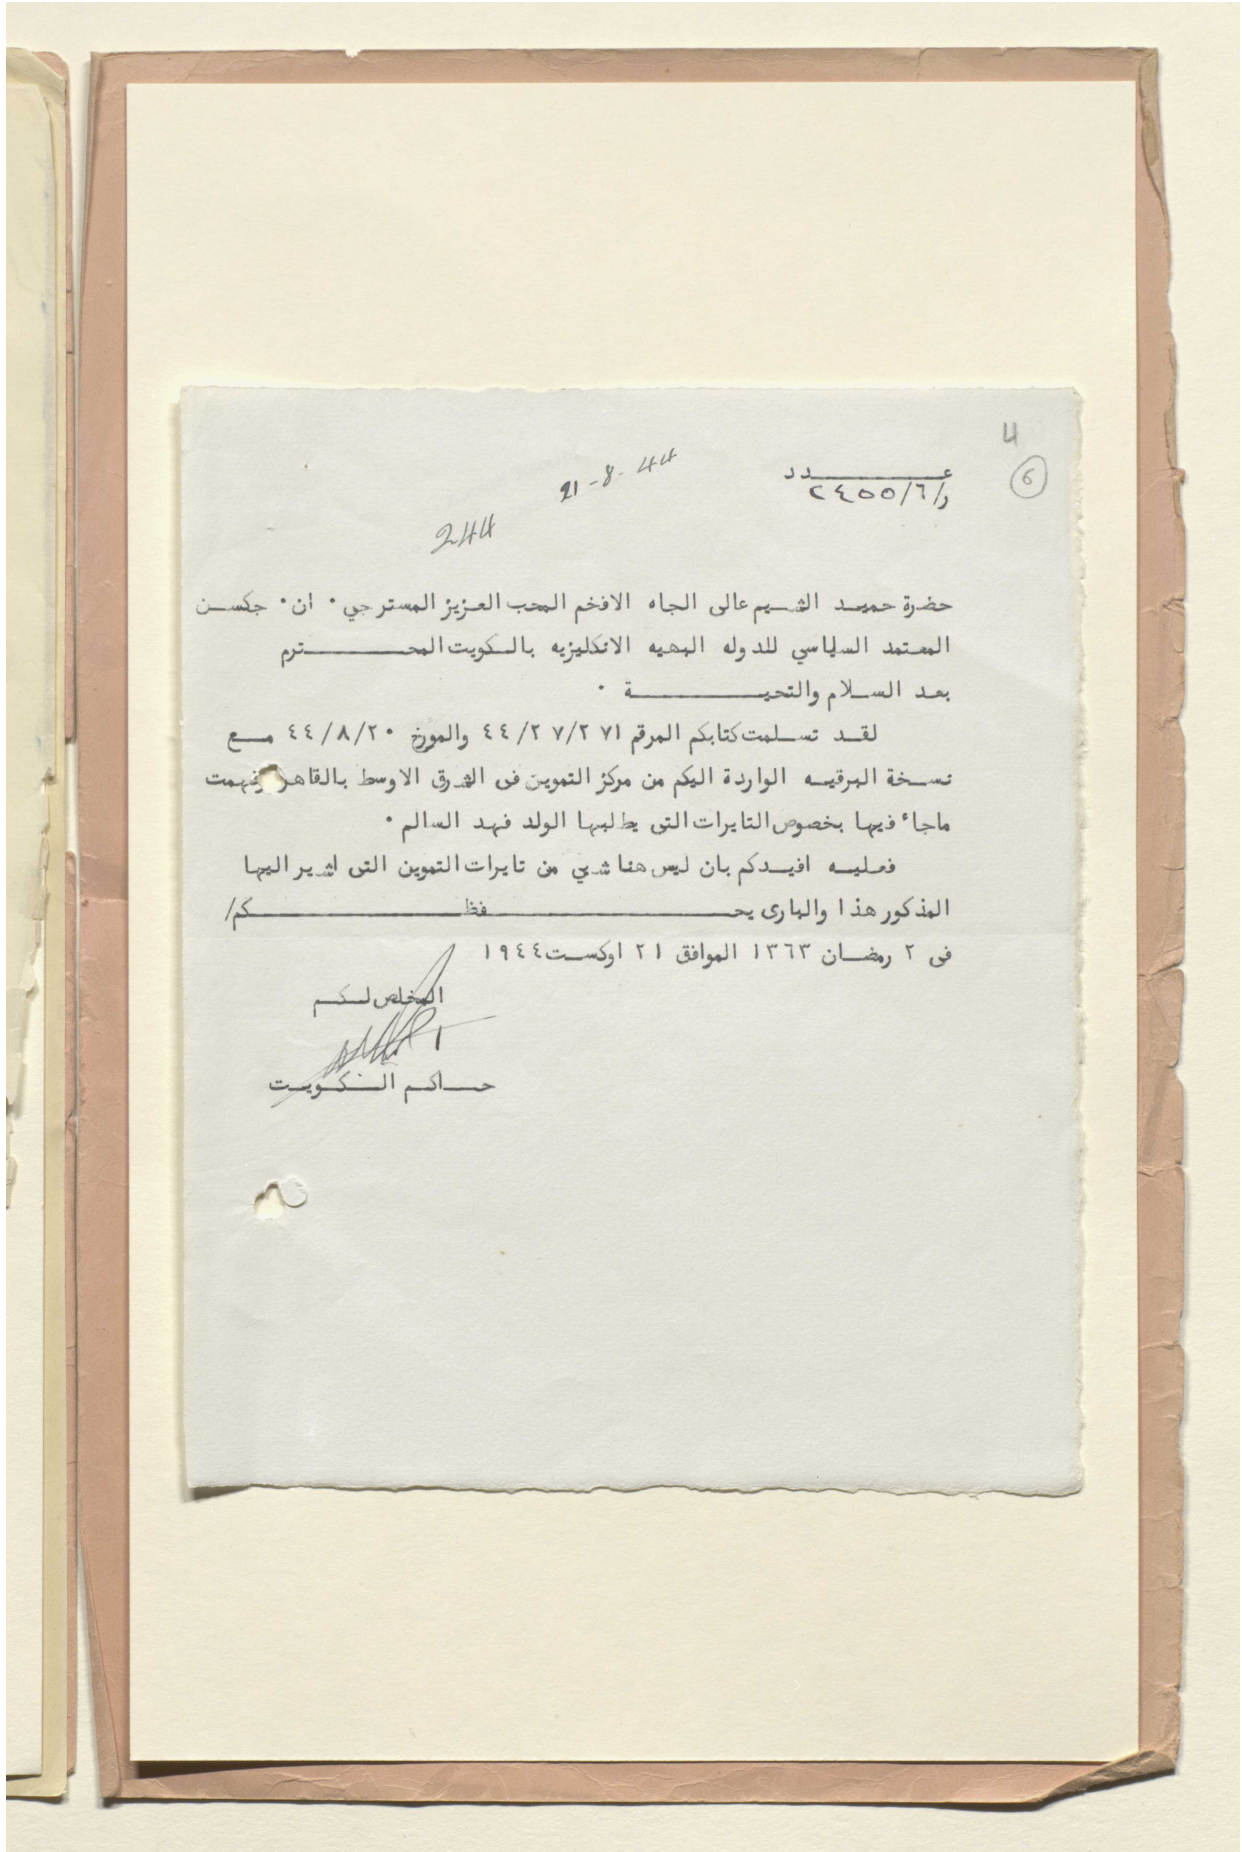 4
6
عـــــــــــدد
ر/٢٤٥٥/٦
21-8-44
244
حضرة حميـد الشـيم عالى الجاه الافخم المحب العـزيز المستر جي٠ ان٠ جكسـن
المعتمد السياسي للدوله البهيه الانكليزيه بالـكويت المحـــــــترم
بعد السـلام والتحيـــــــــة ٠
لقـد تسـلمت كتابكم المرقم ٤٤/٢٧/٢٧١ والمورخ ٤٤/٨/٢٠ مـع
نسـخة البرقيـه الواردة اليكم من مركز التموين فى الشرق الاوسط بالقاهر وفهمت
ماجاء فيها بخصوص التايرات التى يطلبها الولد فهد السالم ٠
فعليـه افيـدكم بان ليس هنا شيئ من تايرات التموين التى اشير اليها
المذكور هذا والبارى يحـــــــــــفظـــــــــــكم/
فى ٢ رمضـان ١٣٦٣ الموافق ٢١ اوكسـت ١٩٤٤
المخلص لـكـم
حـــاكـم الـكـويـت